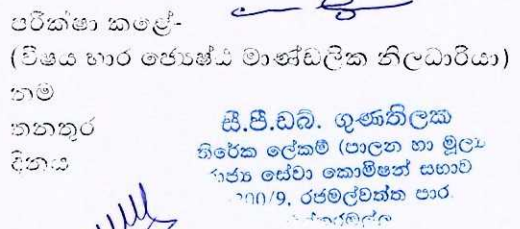 පරීක්ෂා කළේ-
(විෂය භාර ජ්‍යෙෂ්ඨ මාණ්ඩලික නිලධාරියා)
නම
තනතුර
දිනය
සී.පී.ඩබ්. ගුණතිලක
තිරේක ලේකම් (පාලන හා මූල්‍ය
සේවා කොමිෂන් සභාව
රජමල්වත්ත පාර